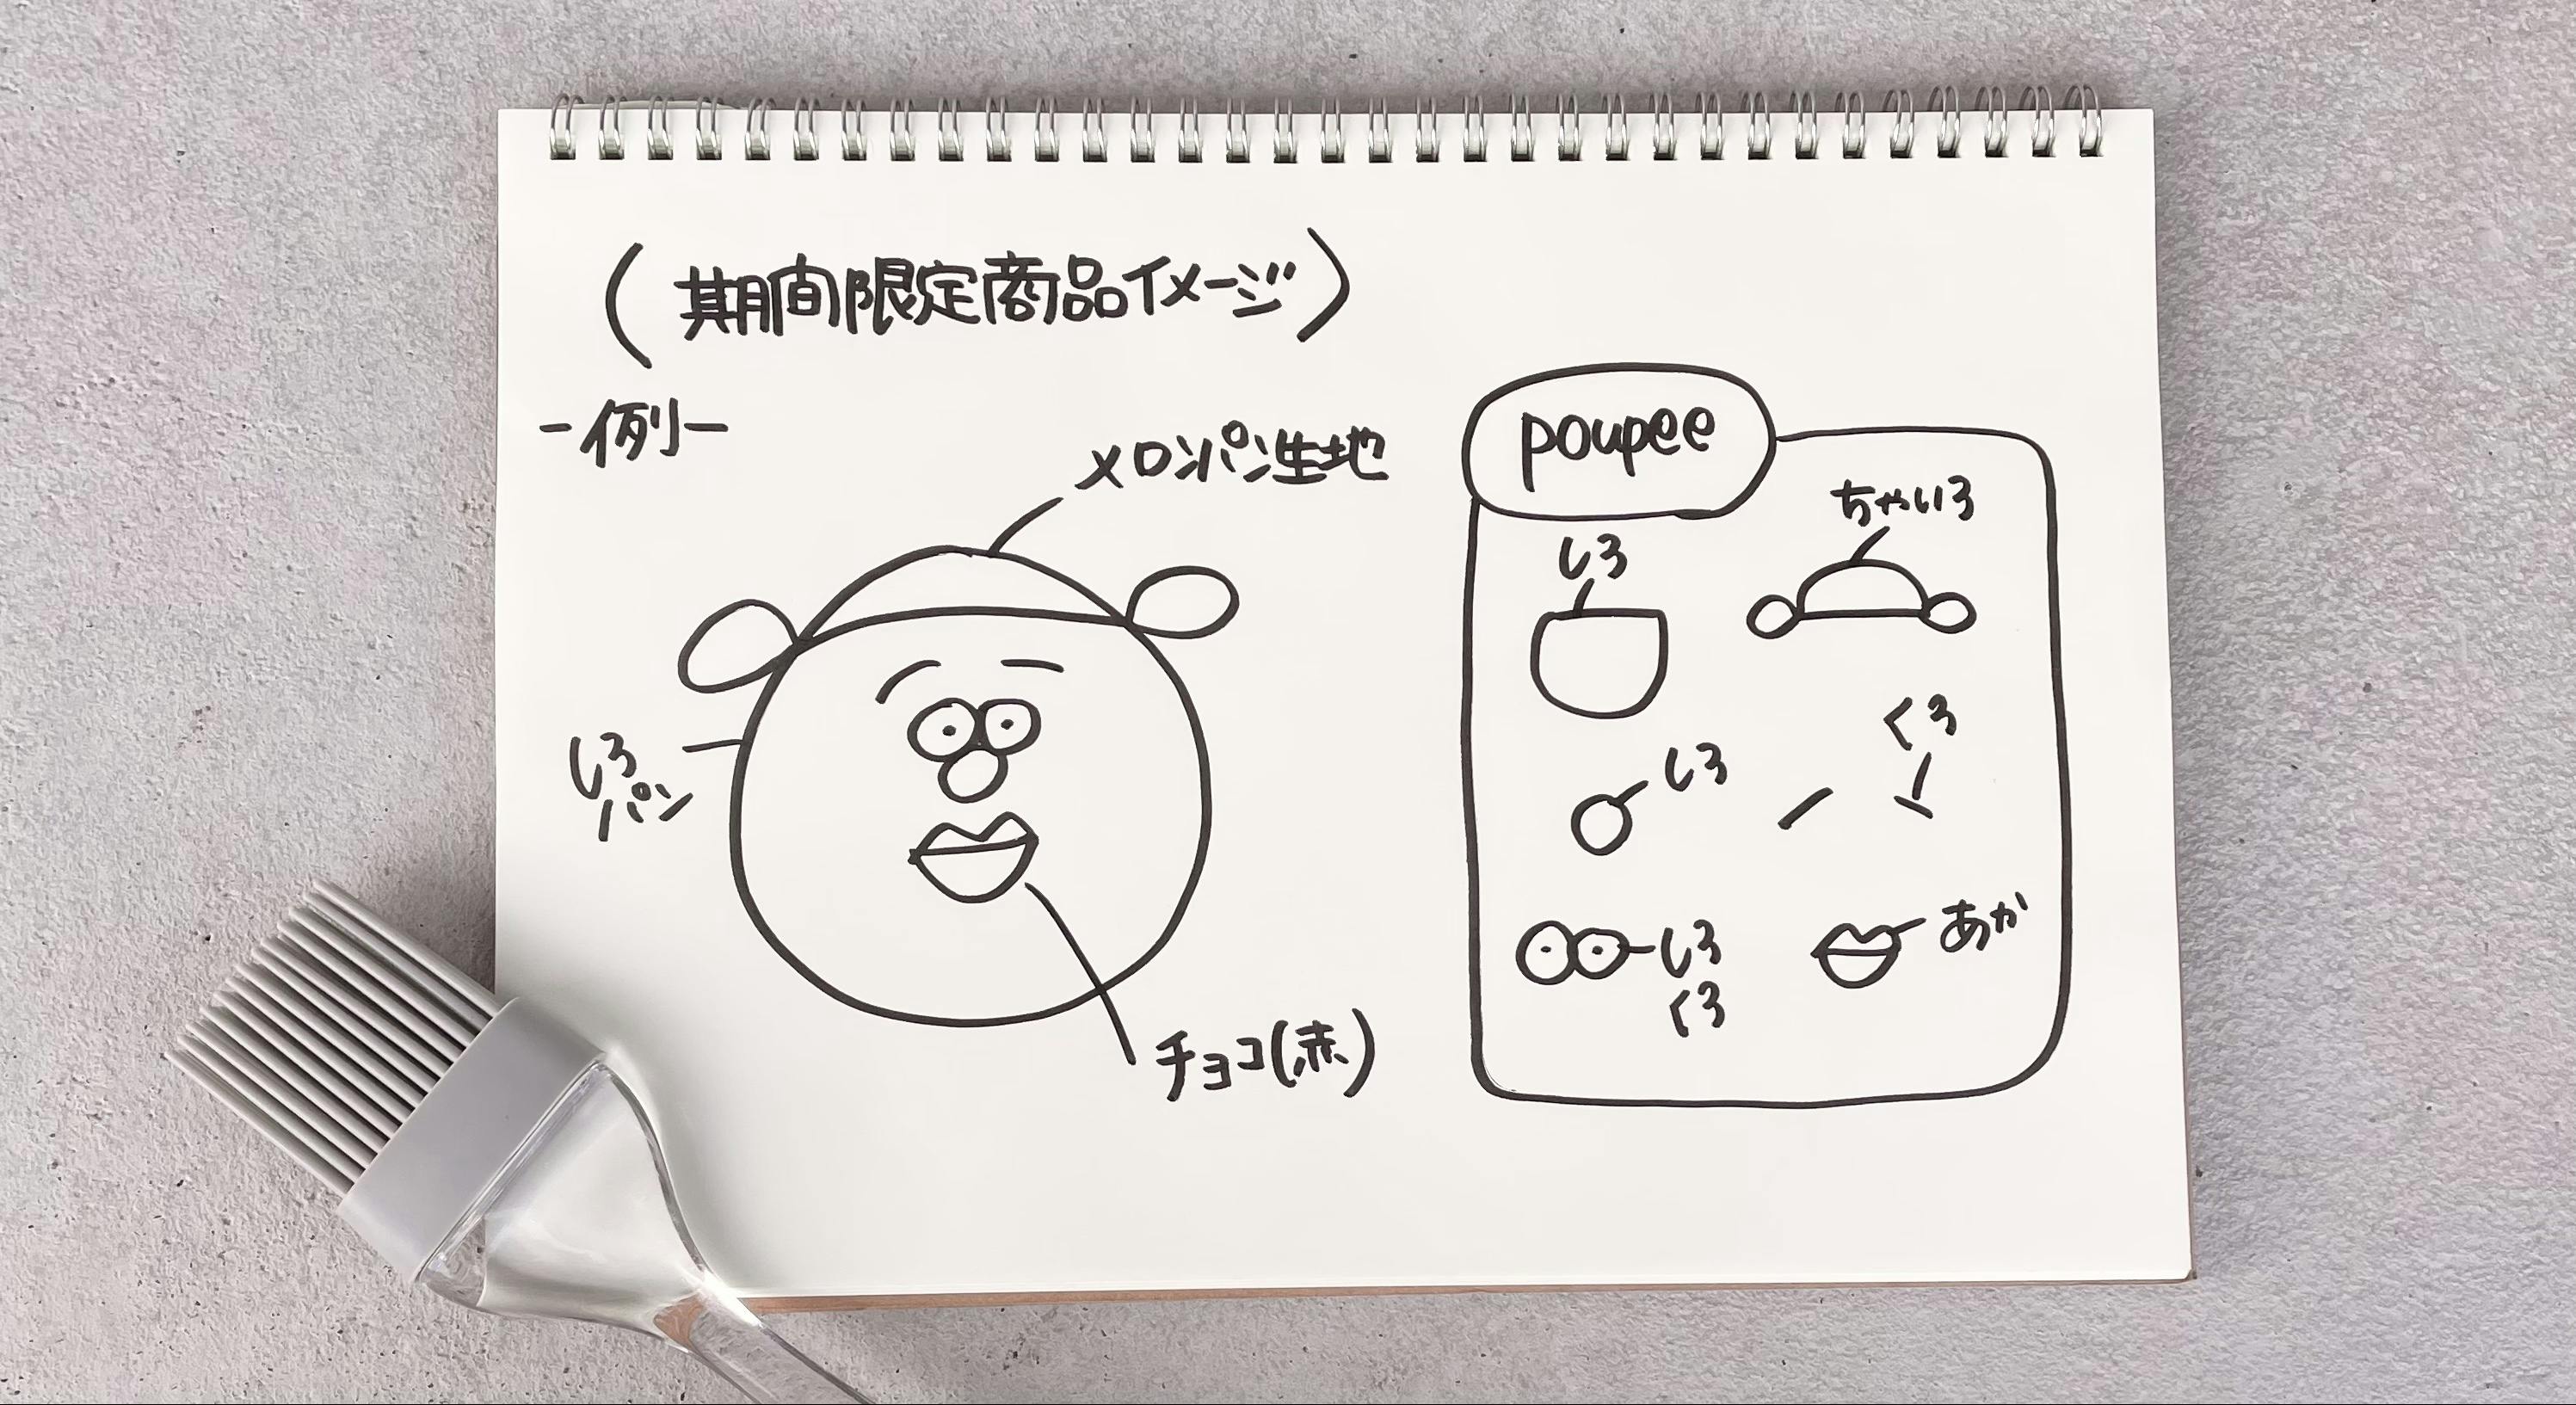 (期間限定商品イメージ)
-例-
メロンパン生地
しろ
パン
チョコ(赤)
poupee
しろ
ちゃいろ
しろ
くろ
しろ
くろ
あか